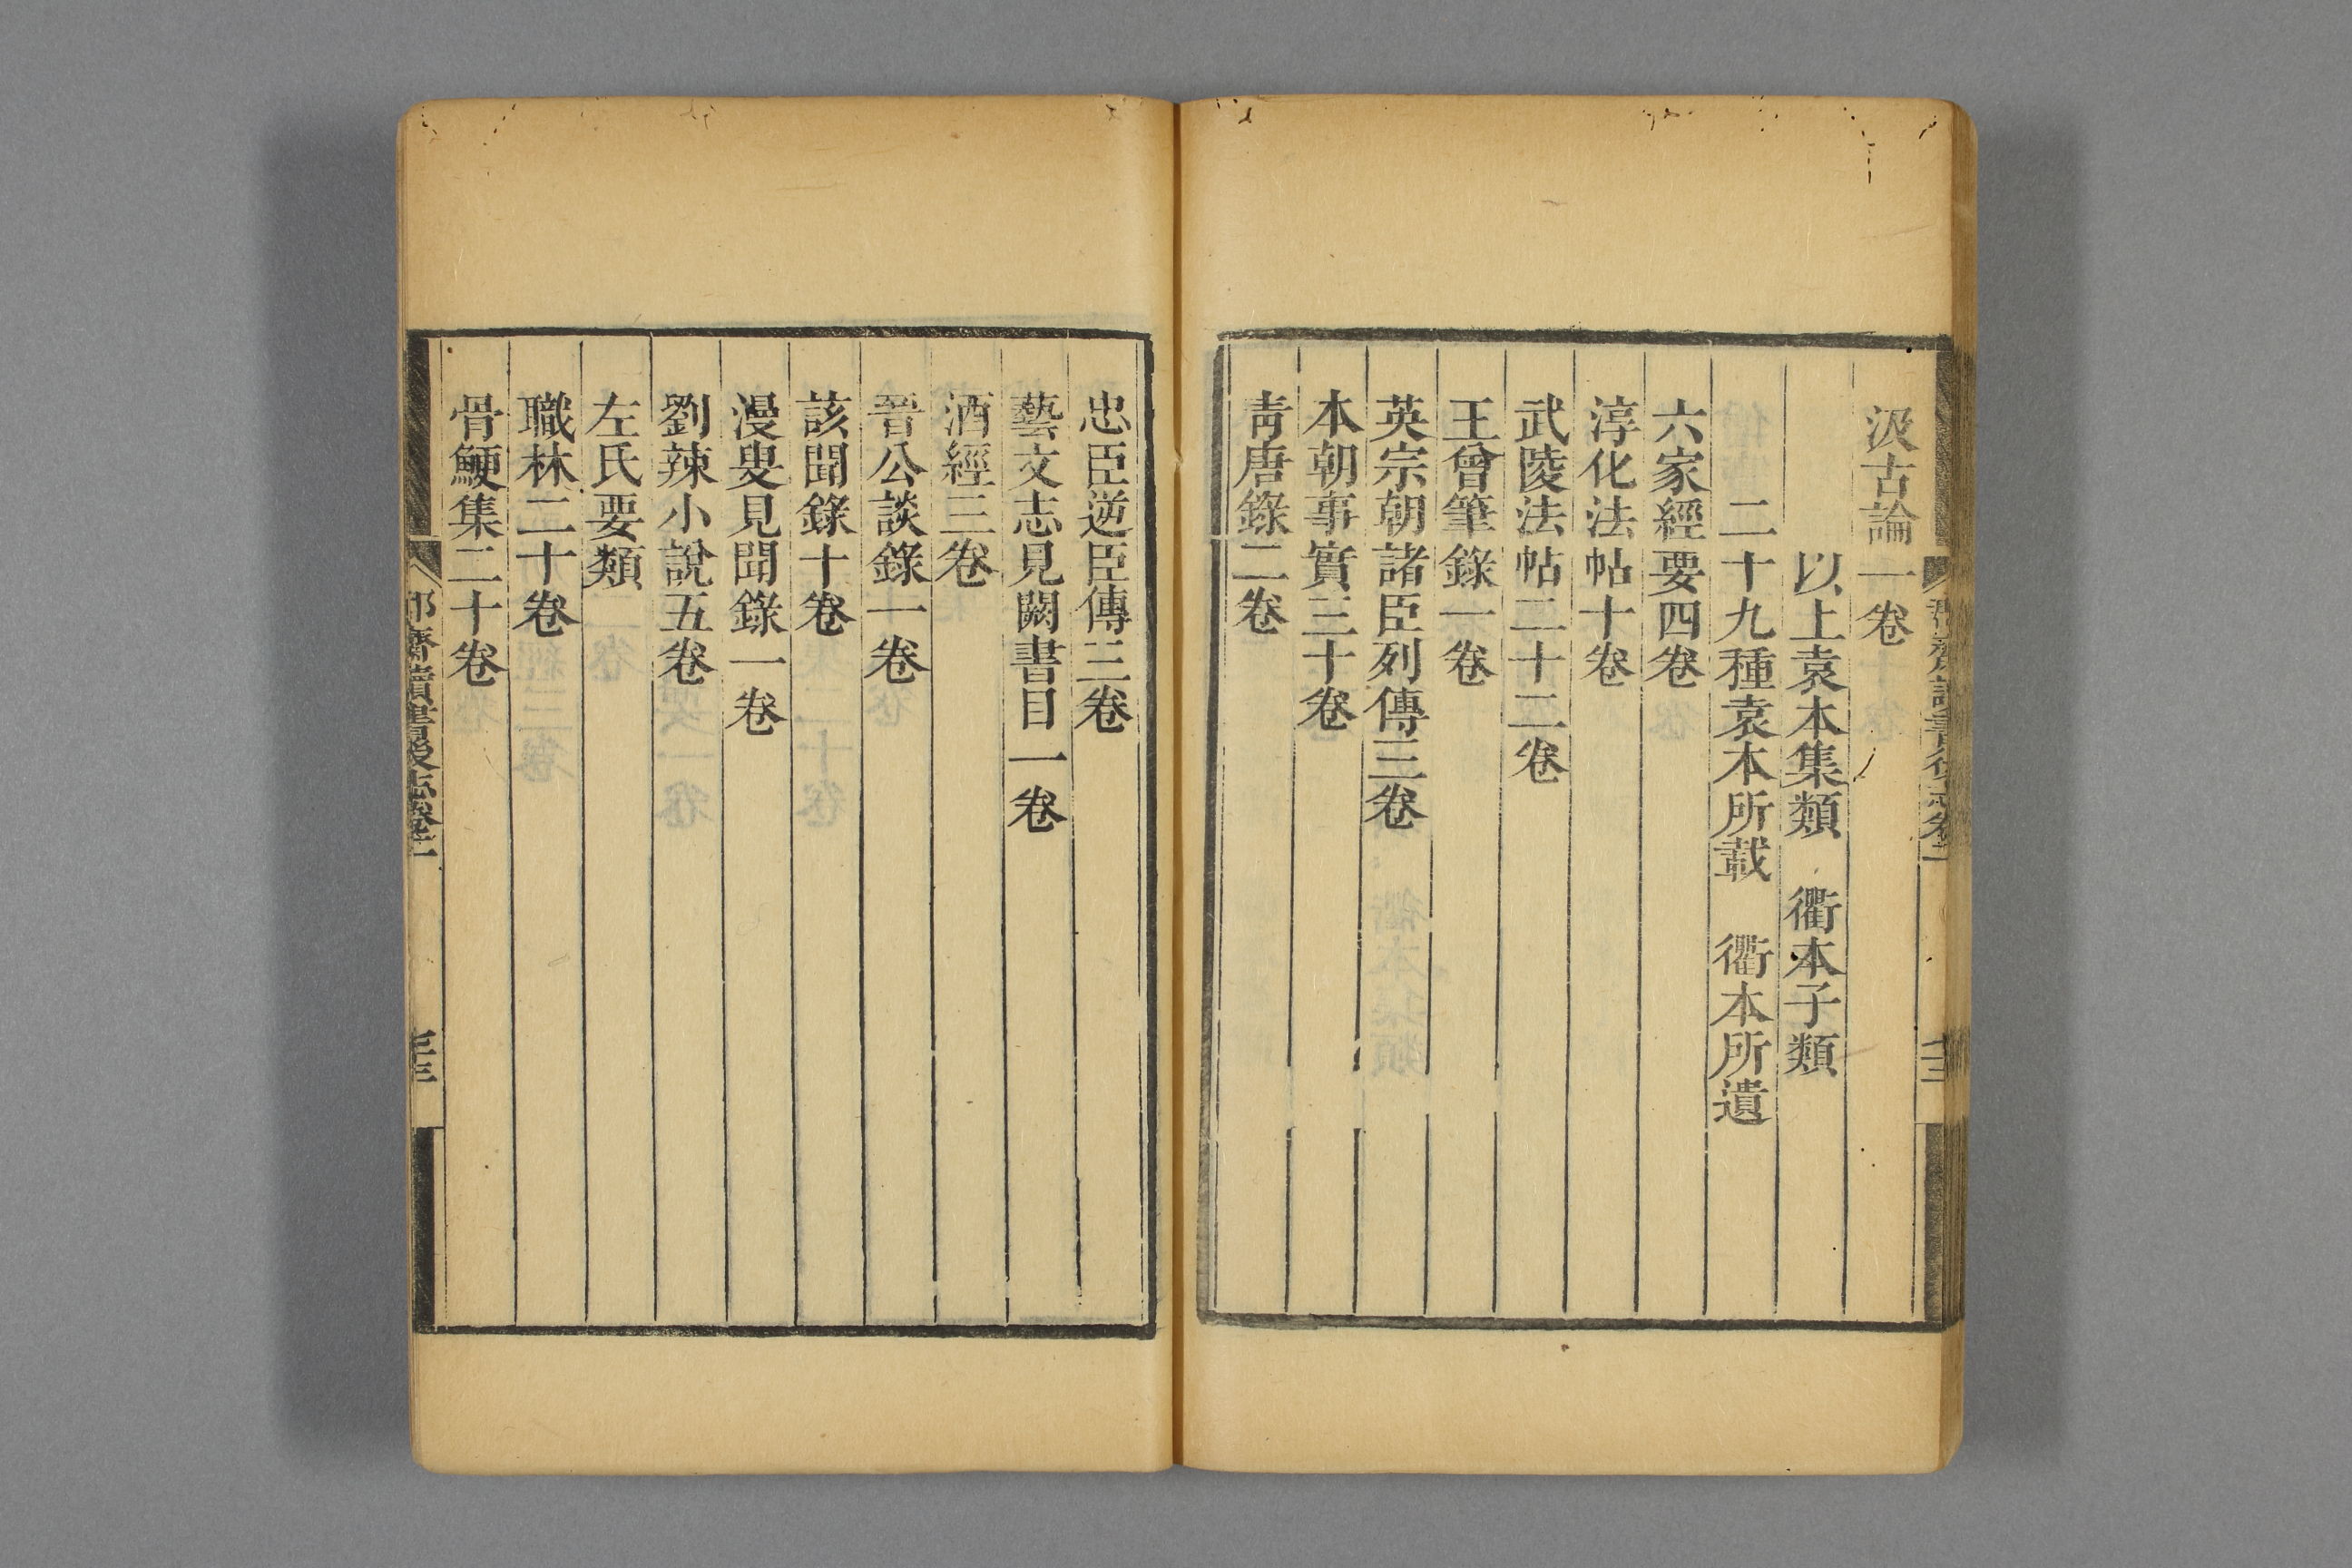 汲古論一卷
以上袁本集類　衢本子類
二十九種袁本所載　衢本所遺
六家經要四卷
淳化法帖十卷
武陵法帖二十二卷
王曾筆錄一卷
英宗朝諸臣列傳三卷
本朝事實三十卷
青唐錄二卷
忠臣逆臣傳三卷
藝文志見闕書目一卷
酒經三卷
晉公談錄一卷
該聞錄十卷
漫叟見聞錄一卷
劉辣小說五卷
左氏要類
職林二十卷
骨鯁集二十卷